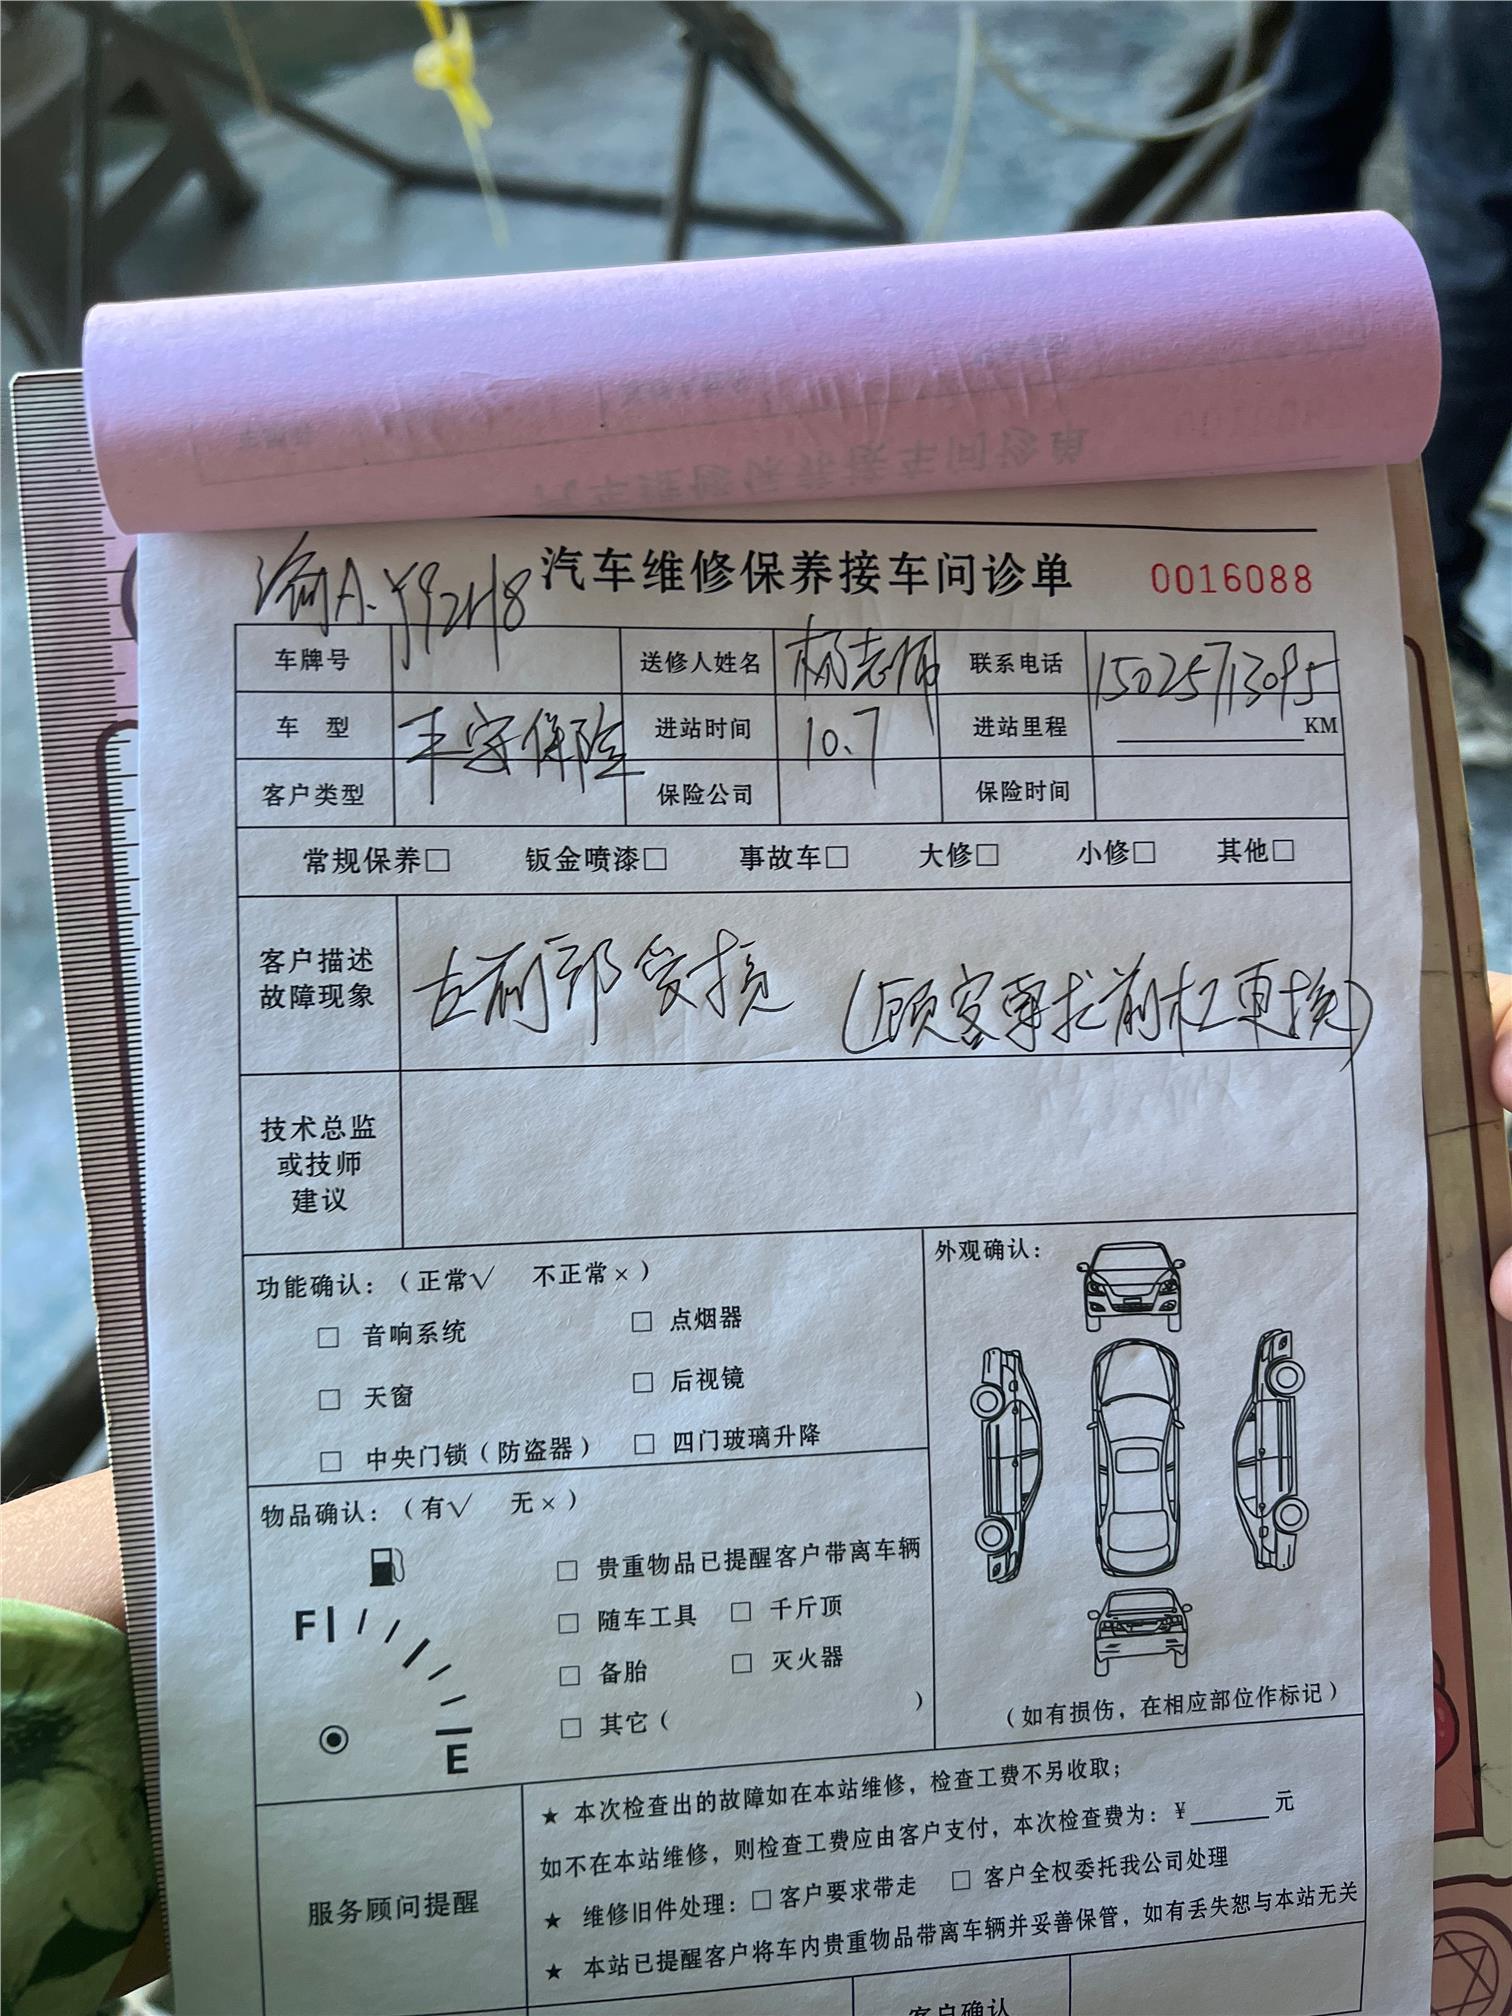 汽车维修保养接车问诊单 0016088
渝A·Y92H8
车牌号 送修人姓名 杨老师 联系电话 15025713095
车 型 进站时间 10.7 进站里程 KM
平安保险
客户类型 保险公司 保险时间
常规保养□ 钣金喷漆□ 事故车□ 大修□ 小修□ 其他□
客户描述
故障现象
左前部受损 (顾客要求前杠更换)
技术总监
或技师
建议
功能确认：（正常√ 不正常×）
□ 音响系统 □ 点烟器
□ 天窗 □ 后视镜
□ 中央门锁（防盗器） □ 四门玻璃升降
外观确认：
（如有损伤，在相应部位作标记）
物品确认：（有√ 无×）
F
E
□ 贵重物品已提醒客户带离车辆
□ 随车工具 □ 千斤顶
□ 备胎 □ 灭火器
□ 其它（ ）
服务顾问提醒
★ 本次检查出的故障如在本站维修，检查工费不另收取；
如不在本站维修，则检查工费应由客户支付，本次检查费为：¥______元
★ 维修旧件处理：□客户要求带走 □ 客户全权委托我公司处理
★ 本站已提醒客户将车内贵重物品带离车辆并妥善保管，如有丢失恕与本站无关
客户确认